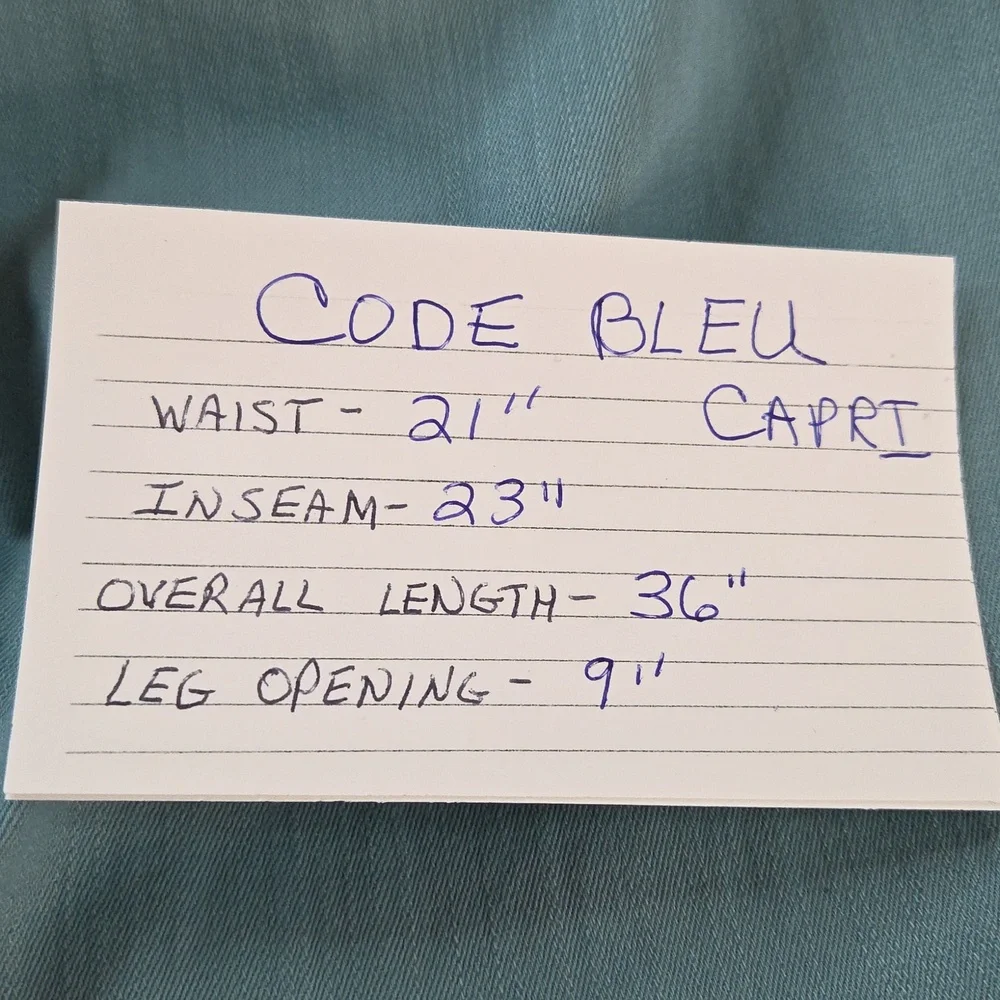 CODE BLEU
CAPRI
WAIST - 21"
INSEAM - 23"
OVERALL LENGTH - 36"
LEG OPENING - 9"